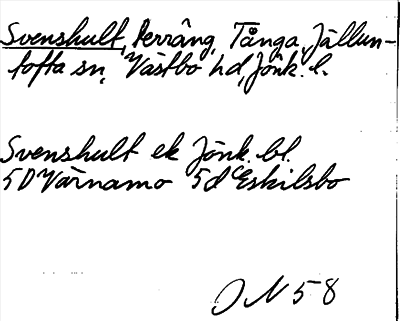 Svenshult, Perrång, Tånga, Jällun-
tofta sn, Västbo hd, Jönk. l.
Svenshult ek Jönk. bl.
5D Värnamo 5d Eskilsbo
ON 58